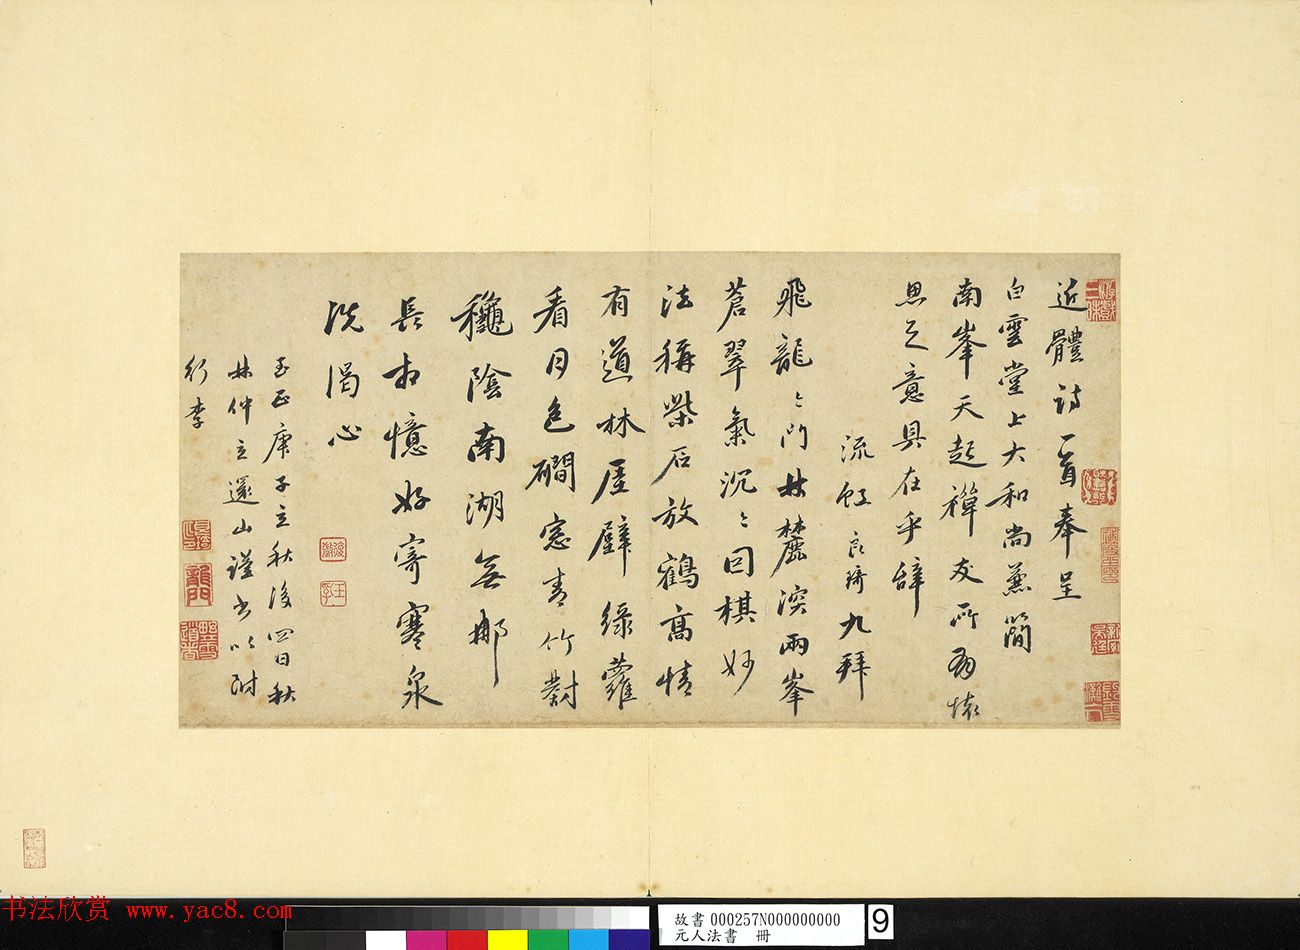 近體詩一首奉呈
白雲堂上大和尚兼簡
南峯天起禪友所有懷
思之意具在乎辭
流虹良琦九拜
飛龍〻門林麓深兩峯
蒼翠氣沉〻囘棋妙
法稱柴石放鶴高情
有道林屋壁綠蘿
看月色磵窓青竹對
龝陰南湖無挪
長相憶好寄寒泉
洗渴心
至正庚子立秋後四日秋
林仲立還山謹書以附
行李
書法欣赏 www.yac8.com
故書 000257N000000000
元人法書 冊
9